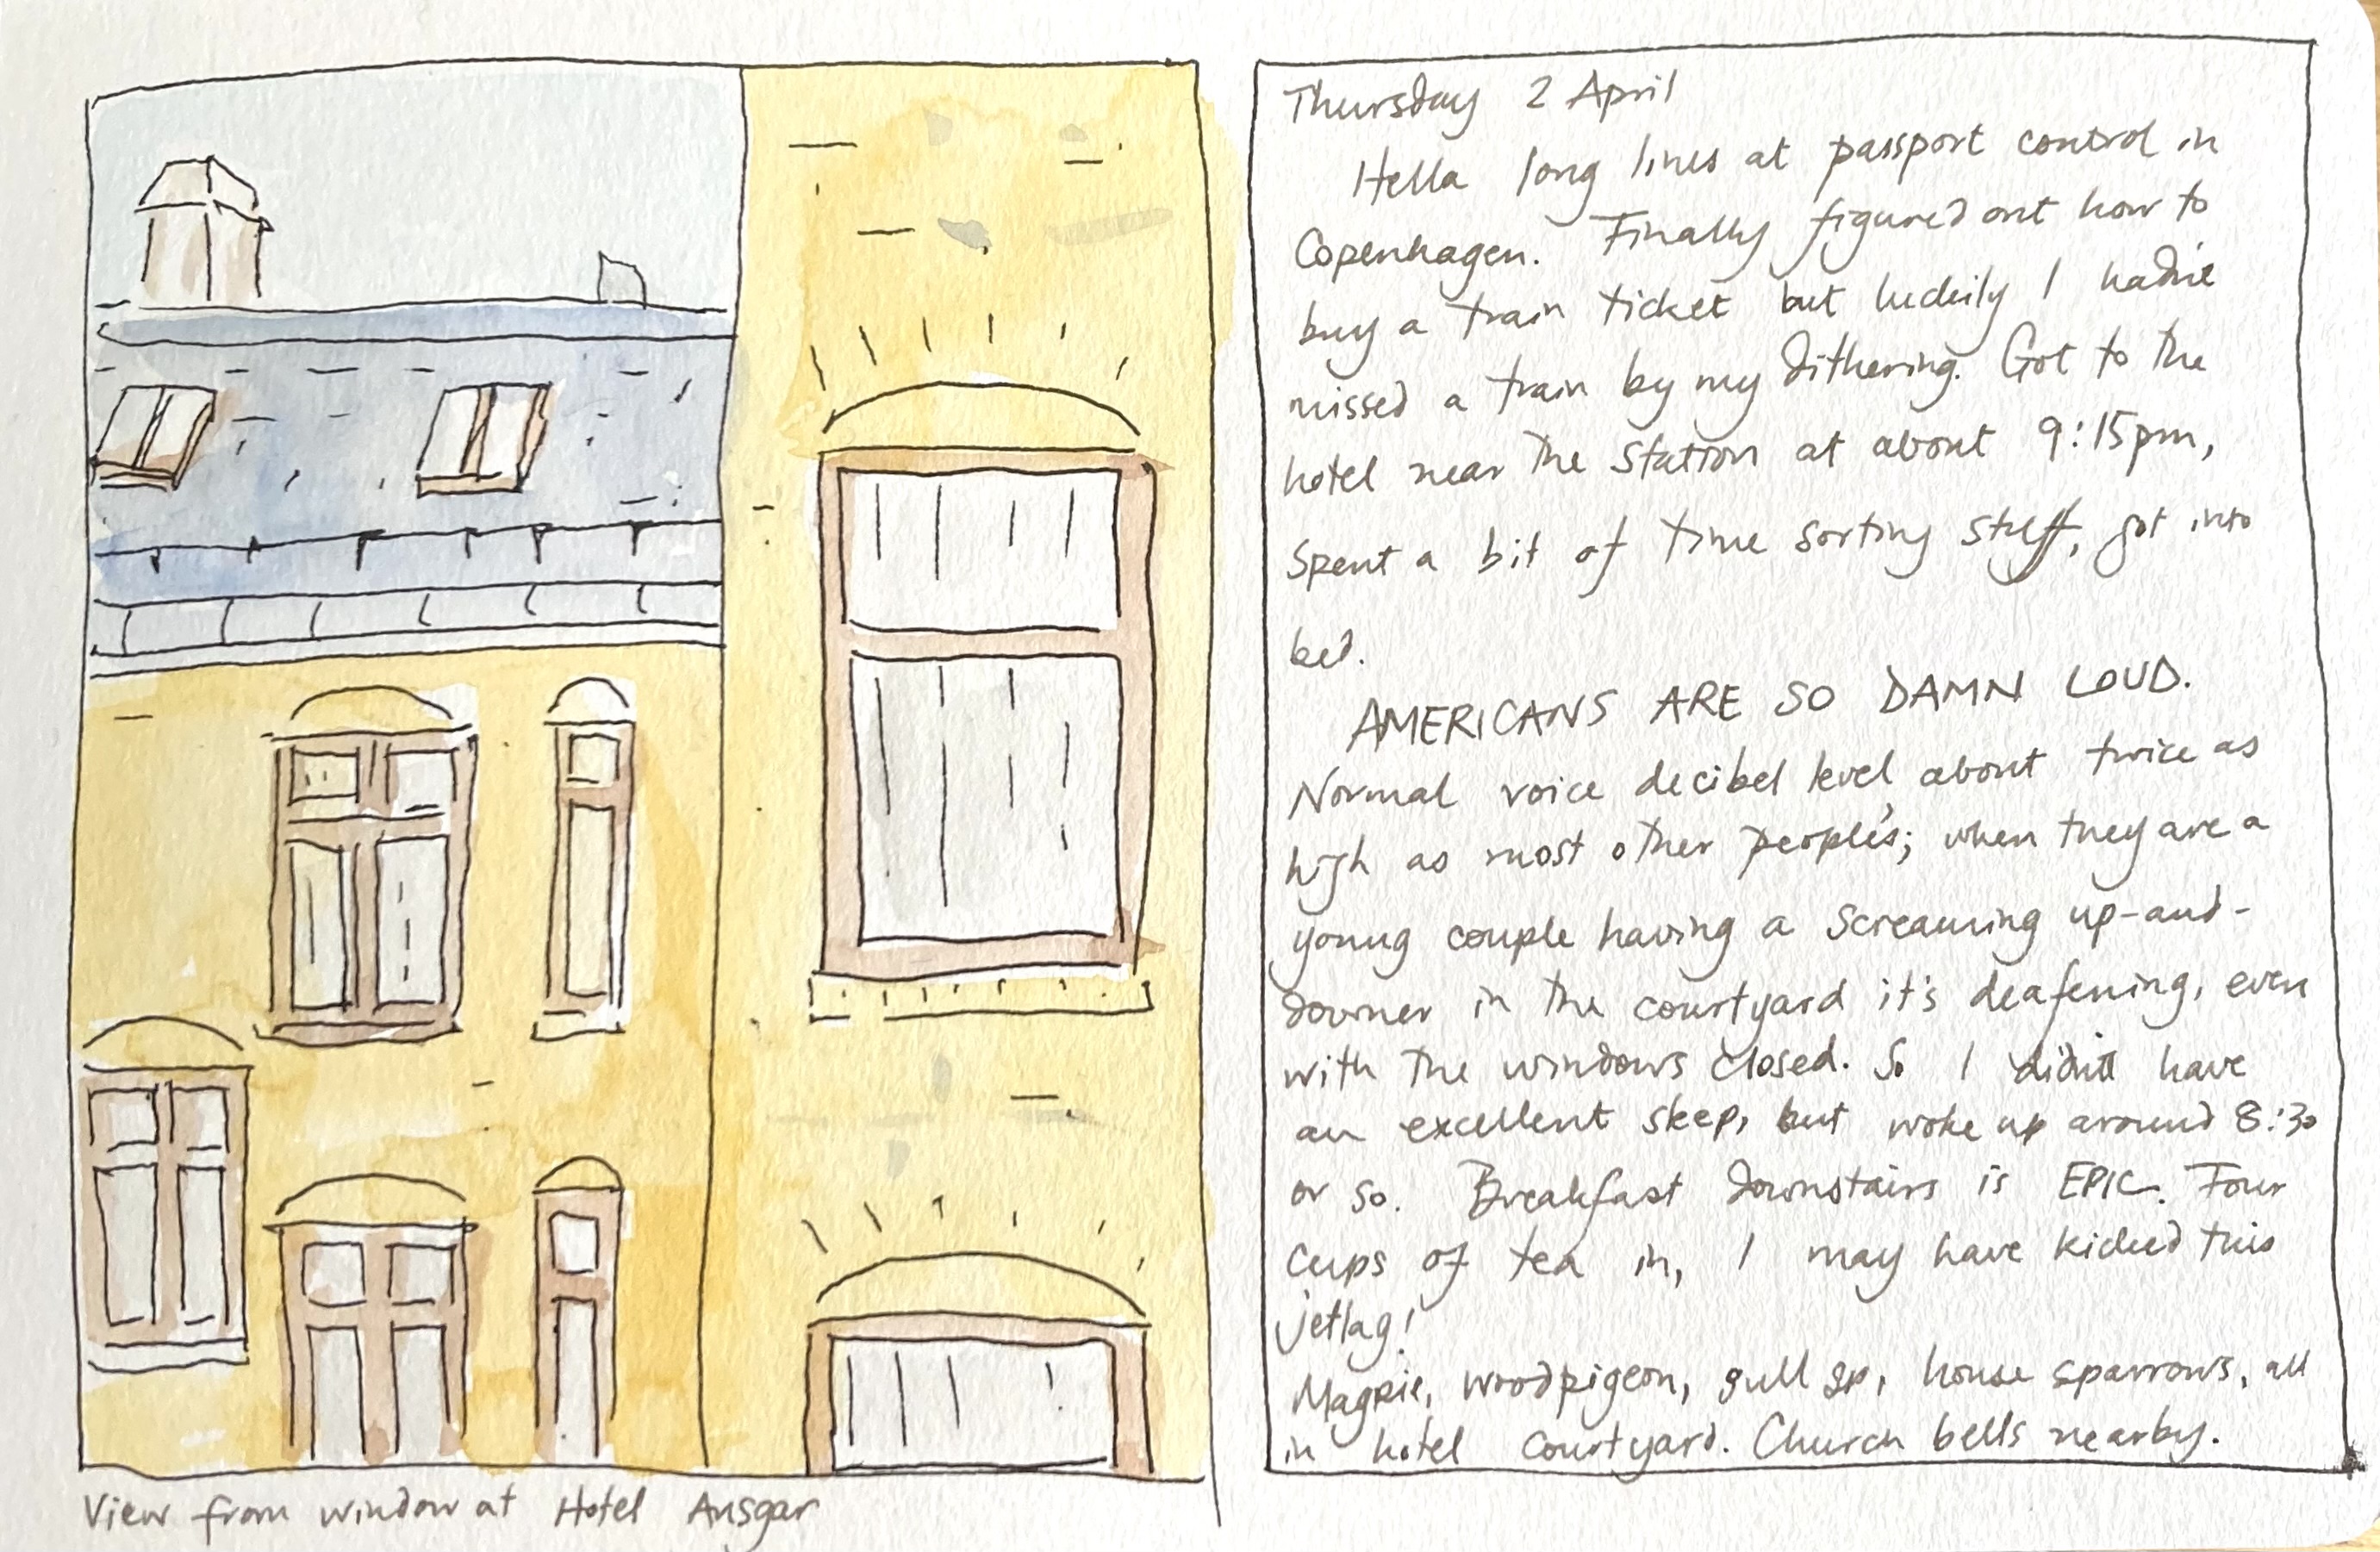 Thursday 2 April
Hella long lines at passport control in
Copenhagen. Finally figured out how to
buy a train ticket but luckily I hadn't
missed a train by my dithering. Got to the
hotel near the station at about 9:15pm,
spent a bit of time sorting stuff, got into
bed.
AMERICANS ARE SO DAMN LOUD.
Normal voice decibel level about twice as
high as most other people's; when they are a
young couple having a screaming up-and-
downer in the courtyard it's deafening, even
with the windows closed. So I didn't have
an excellent sleep, but woke up around 8:30
or so. Breakfast downstairs is EPIC. Four
cups of tea in, I may have kicked this
jetlag!
Magpie, woodpigeon, gull sp, house sparrows, all
in hotel courtyard. Church bells nearby.
View from window at Hotel Ansgar